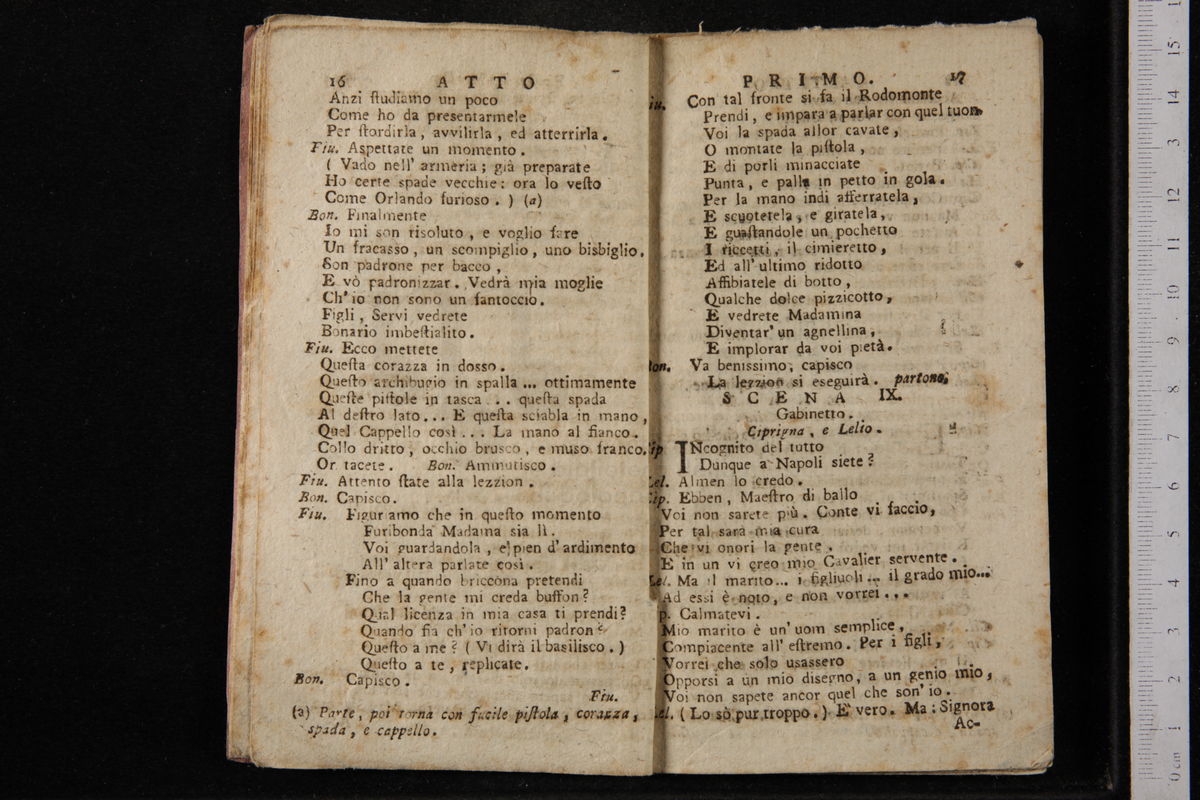 16 ATTO
Anzi ſtudiamo un poco
Come ho da presentarmele
Per ſtordirla, avvilirla, ed atterrirla.
Fiu. Aspettate un momento.
( Vado nell' armeria; già preparate
Ho certe spade vecchie: ora lo veſto
Come Orlando furioso. ) (a)
Bon. Finalmente
Io mi son risoluto, e voglio fare
Un fracasso, un scompiglio, uno bisbiglio.
Son padrone per bacco,
E vò padronizzar. Vedrà mia moglie
Ch' io non sono un fantoccio.
Figli, Servi vedrete
Bonario imbeſtialito.
Fiu. Ecco mettete
Queſta corazza in dosso.
Queſto archibugio in spalla ... ottimamente
Queſte piſtole in tasca ... queſta spada
Al deſtro lato... E queſta sciabla in mano,
Quel Cappello così... La mano al fianco.
Collo dritto, occhio brusco, e muso franco.
Or tacete. Bon. Ammutisco.
Fiu. Attento ſtate alla lezzion.
Bon. Capisco.
Fiu. Figuriamo che in queſto momento
Furibonda Madama sia lì.
Voi guardandola, e pien d' ardimento
All' altera parlate così.
Fino a quando briccona pretendi
Che la gente mi creda buffon?
Qual licenza in mia casa ti prendi?
Quando fia ch' io ritorni padron?
Queſto a me? ( Vi dirà il basilisco. )
Queſto a te, replicate.
Bon. Capisco.
Fiu.
(a) Parte, poi torna con facile piſtola, corazza,
spada, e cappello.
PRIMO. 17
iu. Con tal fronte si fa il Rodomonte
Prendi, e impara a parlar con quel tuon.
Voi la spada allor cavate,
O montate la piſtola,
E di porli minacciate
Punta, e palla in petto in gola.
Per la mano indi afferratela,
E scuotetela, e giratela,
E guaſtandole un pochetto
I riccetti, il cimieretto,
Ed all' ultimo ridotto
Affibiatele di botto,
Qualche dolce pizzicotto,
E vedrete Madamina
Diventar' un agnellina,
E implorar da voi pietà.
Bon. Va benissimo, capisco
La lezzion si eseguirà. partono.
SCENA IX.
Gabinetto.
Ciprigna, e Lelio.
ip INcognito del tutto
Dunque a Napoli siete?
Lel. Almen lo credo.
Cip. Ebben, Maeſtro di ballo
Voi non sarete più. Conte vi faccio,
Per tal sarà mia cura
Che vi onori la gente.
E in un vi creo mio Cavalier servente.
Lel. Ma il marito... i figliuoli... il grado mio...
Ad essi è noto, e non vorrei...
p. Calmatevi.
Mio marito è un' uom semplice,
Compiacente all' eſtremo. Per i figli,
Vorrei che solo usassero
Opporsi a un mio disegno, a un genio mio,
Voi non sapete ancor quel che son' io.
Lel. ( Lo sò pur troppo. ) E' vero. Ma: Signora
Ac-